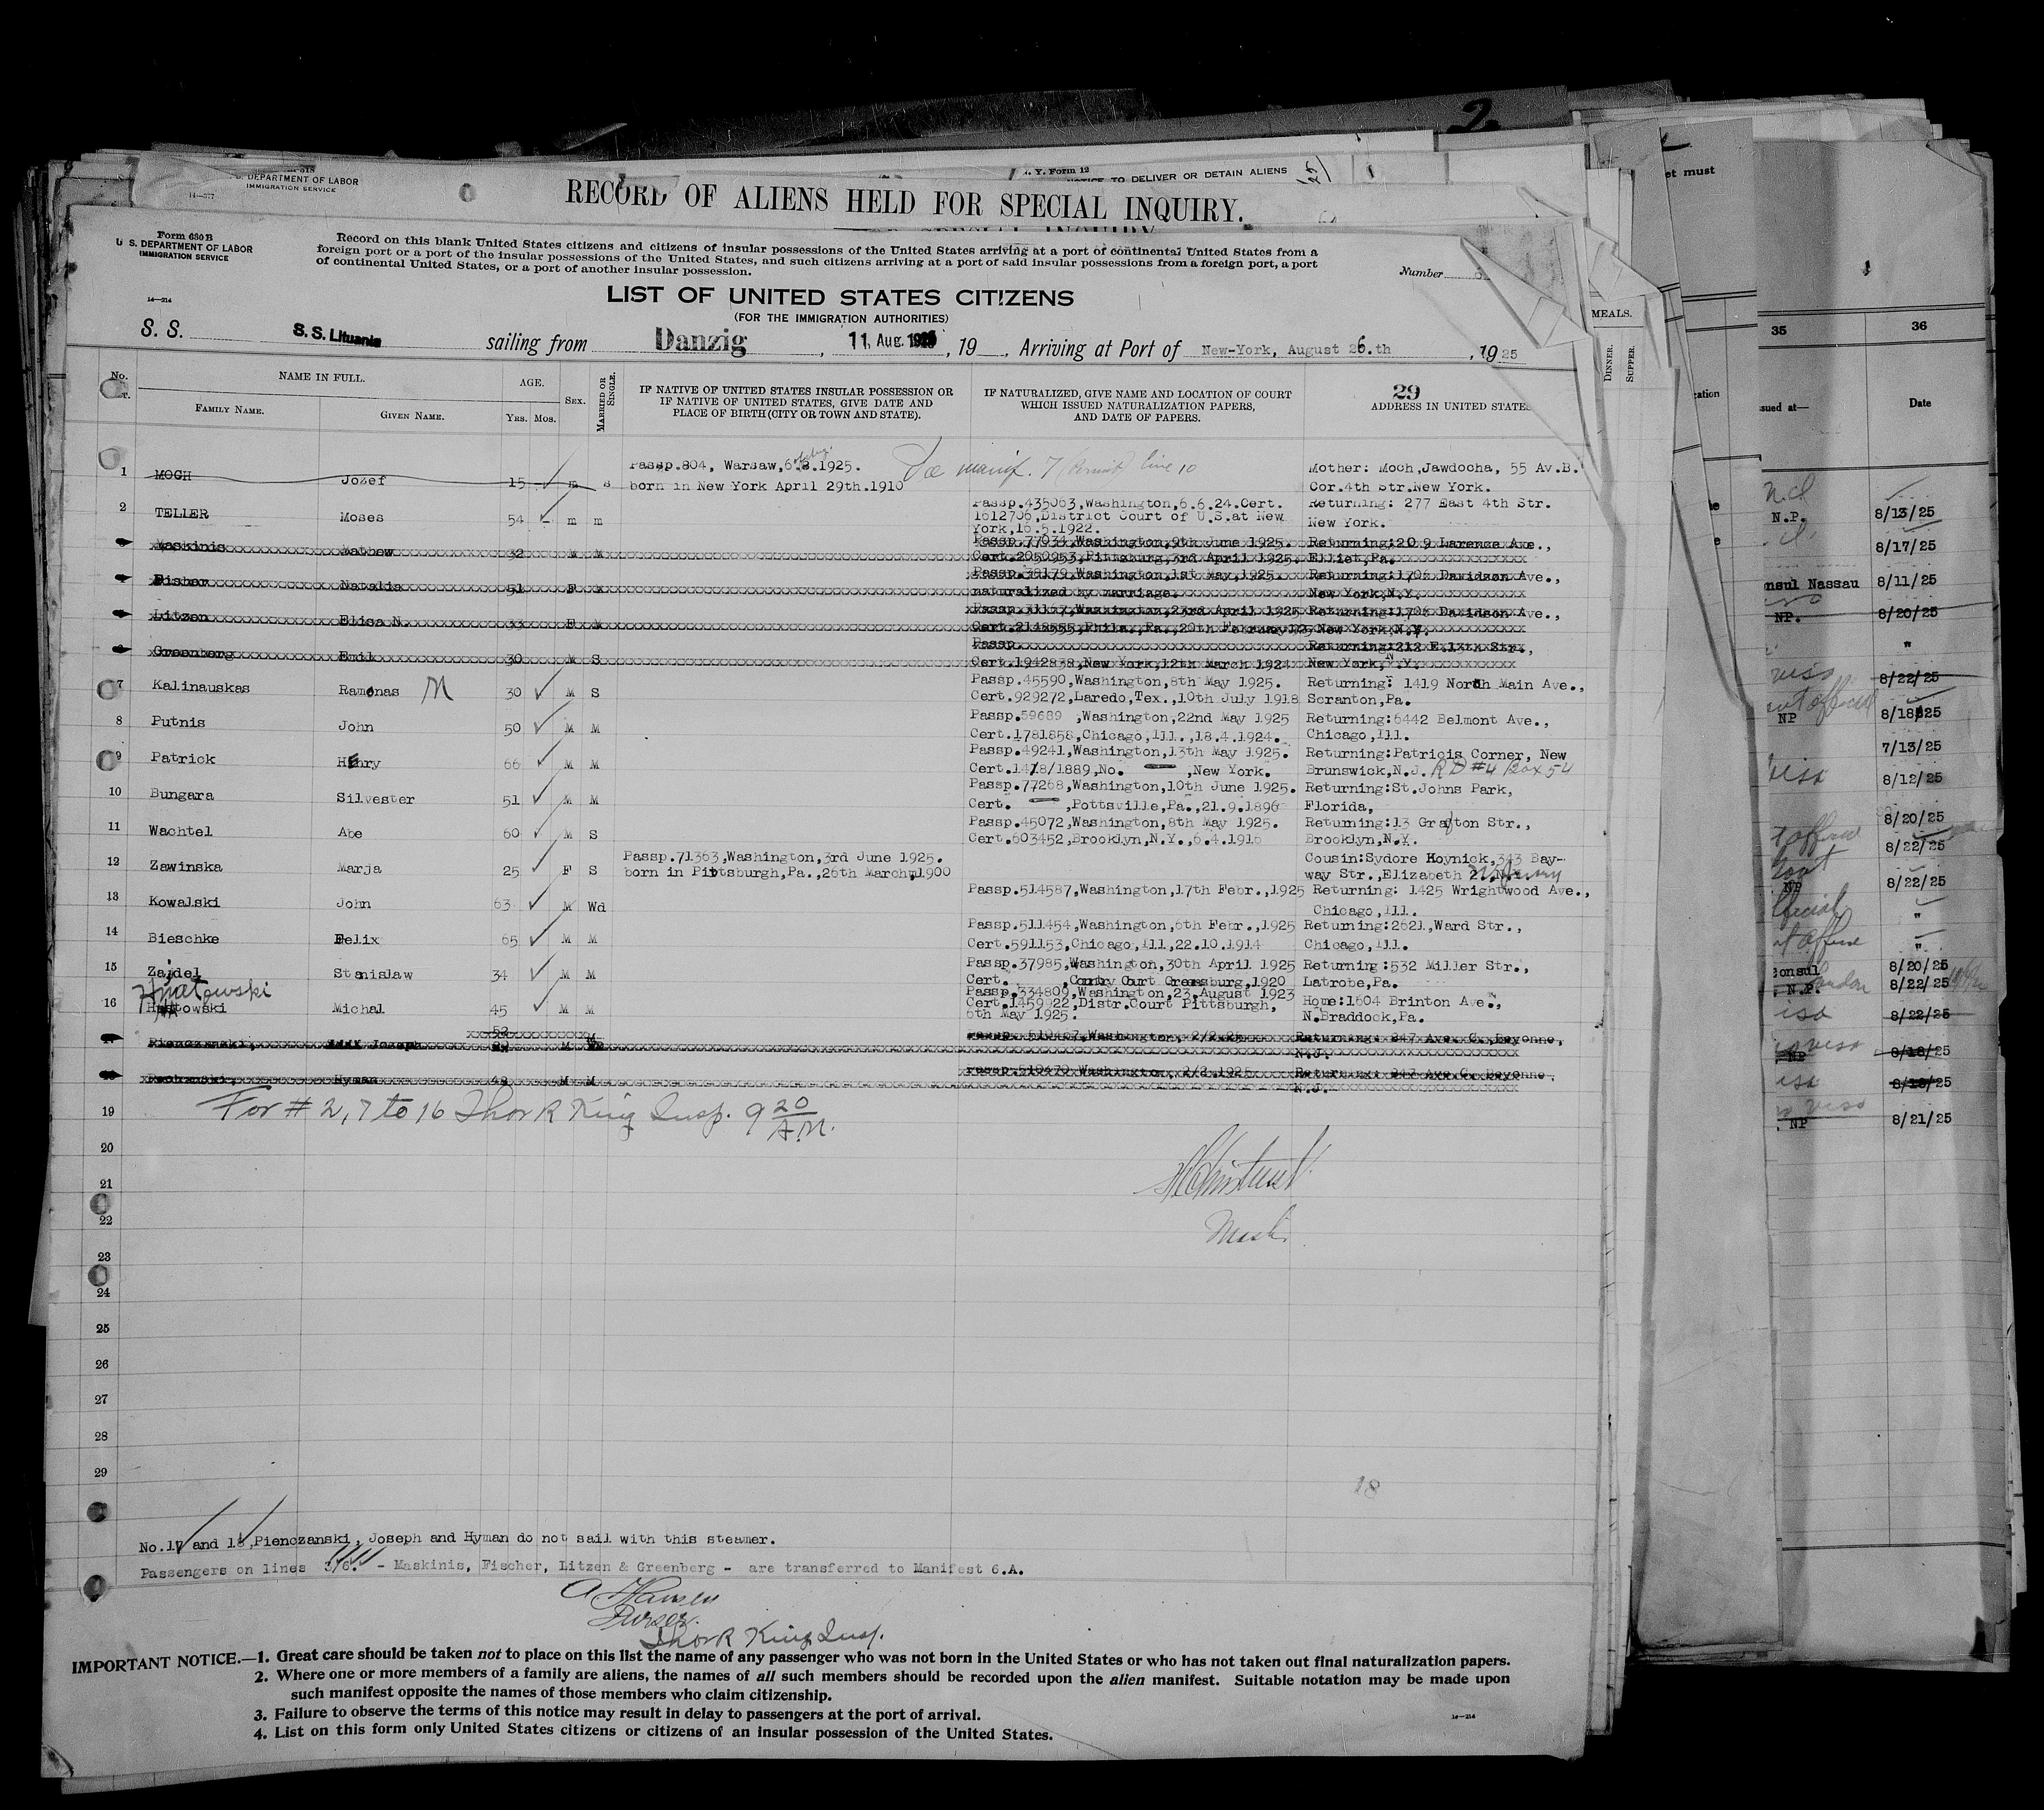 2.
U.S. DEPARTMENT OF LABOR
IMMIGRATION SERVICE
14—377
N. Y. Form 12
NOTICE TO DELIVER OR DETAIN ALIENS
RECORD OF ALIENS HELD FOR SPECIAL INQUIRY.
Form 630 B
U. S. DEPARTMENT OF LABOR
IMMIGRATION SERVICE
Record on this blank United States citizens and citizens of insular possessions of the United States arriving at a port of continental United States from a
foreign port or a port of the insular possessions of the United States, and such citizens arriving at a port of said insular possessions from a foreign port, a port
of continental United States, or a port of another insular possession.
Number
14—214
LIST OF UNITED STATES CITIZENS
(FOR THE IMMIGRATION AUTHORITIES)
S. S. S. S. Lituania sailing from Danzig, 11, Aug. 1925, 19__, Arriving at Port of New-York, August 26.th, 1925
No. NAME IN FULL. AGE. SEX. MARRIED OR SINGLE. IF NATIVE OF UNITED STATES INSULAR POSSESSION OR IF NATIVE OF UNITED STATES, GIVE DATE AND PLACE OF BIRTH (CITY OR TOWN AND STATE). IF NATURALIZED, GIVE NAME AND LOCATION OF COURT WHICH ISSUED NATURALIZATION PAPERS, AND DATE OF PAPERS. 29 ADDRESS IN UNITED STATES
FAMILY NAME. GIVEN NAME. YRS. MOS.
1 MOCH Jozef 15 - m s Passp.804, Warsaw, 6.8.1925. See manif. 7 line 10 Mother: Moch,Jawdocha, 55 Av.B.
born in New York April 29th.1910 Cor.4th Str.New York.
2 TELLER Moses 54 - m m Passp.435063,Washington,6.6.24.Cert. Returning: 277 East 4th Str.
1612706,District Court of U.S.at New New York.
York,16.5.1922.
Maskinis Mathew 32 M M Passp.77034,Washington,9th June 1925. Returning:209 Larenze Ave.,
Cert.2050953,Pittsburg,3rd April 1925. Elliet,Pa.
Fisher Natalia 51 F Passp.38179,Washington,1st May,1925. Returning:1706 Davidson Ave.,
naturalized by marriage. New York,N.Y.
Litzen Elisa N. 33 F M Passp.31167,Washington,23rd April 1925 Returning:1706 Davidson Ave.,
Cert.2148555,Phila.,Pa.,20th February New York,N.Y.
Greenberg Emil 30 M S Passp. Returning:212 E.13th Str.,
Cert.1942838,New York,12th March 1924 New York,N.Y.
7 Kalinauskas Ramonas M 30 M S Passp.45590,Washington,8th May 1925. Returning: 1419 North Main Ave.,
Cert.929272,Laredo,Tex.,10th July 1918 Scranton,Pa.
8 Putnis John 50 M M Passp.59689 ,Washington,22nd May 1925 Returning:6442 Belmont Ave.,
Cert.1781858,Chicago,Ill.,18.4.1924. Chicago,Ill.
9 Patrick HEnry 66 M M Passp.49241,Washington,13th May 1925. Returning:Patricis Corner, New
Cert.1418/1889,No. — ,New York. Brunswick,N.J. RD #4 Box 54
10 Bungara Silvester 51 M M Passp.77268,Washington,10th June 1925. Returning:St.Johns Park,
Cert. — ,Pottsville,Pa.,21.9.1896 Florida.
11 Wachtel Abe 60 M S Passp.45072,Washington,8th May 1925. Returning:13 Grafton Str.,
Cert.603452,Brooklyn,N.Y.,6.4.1916 Brooklyn,N.Y.
12 Zawinska Marja 25 F S Passp.71363,Washington,3rd June 1925. Cousin:Sydore Hoynick,343 Bay-
born in Pittsburgh,Pa.,26th March,1900 way Str.,Elizabeth
13 Kowalski John 63 M Wd Passp.514587,Washington,17th Febr.,1925 Returning: 1425 Wrightwood Ave.,
Chicago,Ill.
14 Bieschke Felix 65 M M Passp.511454,Washington,6th Febr.,1925 Returning:2621,Ward Str.,
Cert.591153,Chicago,Ill,22.10.1914 Chicago,Ill.
15 Zajdel Stanislaw 34 M M Passp.37985,Washington,30th April 1925 Returning:532 Miller Str.,
Cert. ,County Court Greensburg,1920 Latrobe,Pa.
Hnatowski
16 Hnatowski Michal 45 M M Passp.334809,Washington,23.August 1923 Home:1604 Brinton Ave.,
Cert.1459922,Distr.Court Pittsburgh, N.Braddock,Pa.
6th May 1925.
17 Pienczanski, Joseph 52 M Passp.510487,Washington, 2/2.25 Returning: 847 Ave. C.,Bayonne,
N.J.
Hyman 48 M M Passp.510479 Washington, 2/2.1925 Returning: 847 Ave C., Bayonne,
N.J.
19 For # 2, 7 to 16 Thor R King Insp. 9 20 A.M.
20
21
22
Mast.
23
24
25
26
27
28
29
18
No.17 and 18,Pienczanski, Joseph and Hyman do not sail with this steamer.
Passengers on lines 3/6. - Maskinis, Fischer, Litzen & Greenberg - are transferred to Manifest 6.A.
A Hansen
Purser.
Thor R King Insp.
IMPORTANT NOTICE.—1. Great care should be taken not to place on this list the name of any passenger who was not born in the United States or who has not taken out final naturalization papers.
2. Where one or more members of a family are aliens, the names of all such members should be recorded upon the alien manifest. Suitable notation may be made upon
such manifest opposite the names of those members who claim citizenship.
3. Failure to observe the terms of this notice may result in delay to passengers at the port of arrival.
4. List on this form only United States citizens or citizens of an insular possession of the United States.
14—214
MEALS.
DINNER.
SUPPER.
et must
35 36
sued at— Date
N.P. 8/13/25
8/17/25
nsul Nassau 8/11/25
NP. 8/20/25
"
viso 8/22/25
NP 8/18/25
7/13/25
viso 8/12/25
8/20/25
8/22/25
NP 8/22/25
"
"
Consul 8/20/25
N.P. London 8/22/25
8/22/25
NP 8/18/25
8/18/25
viso
NP 8/21/25